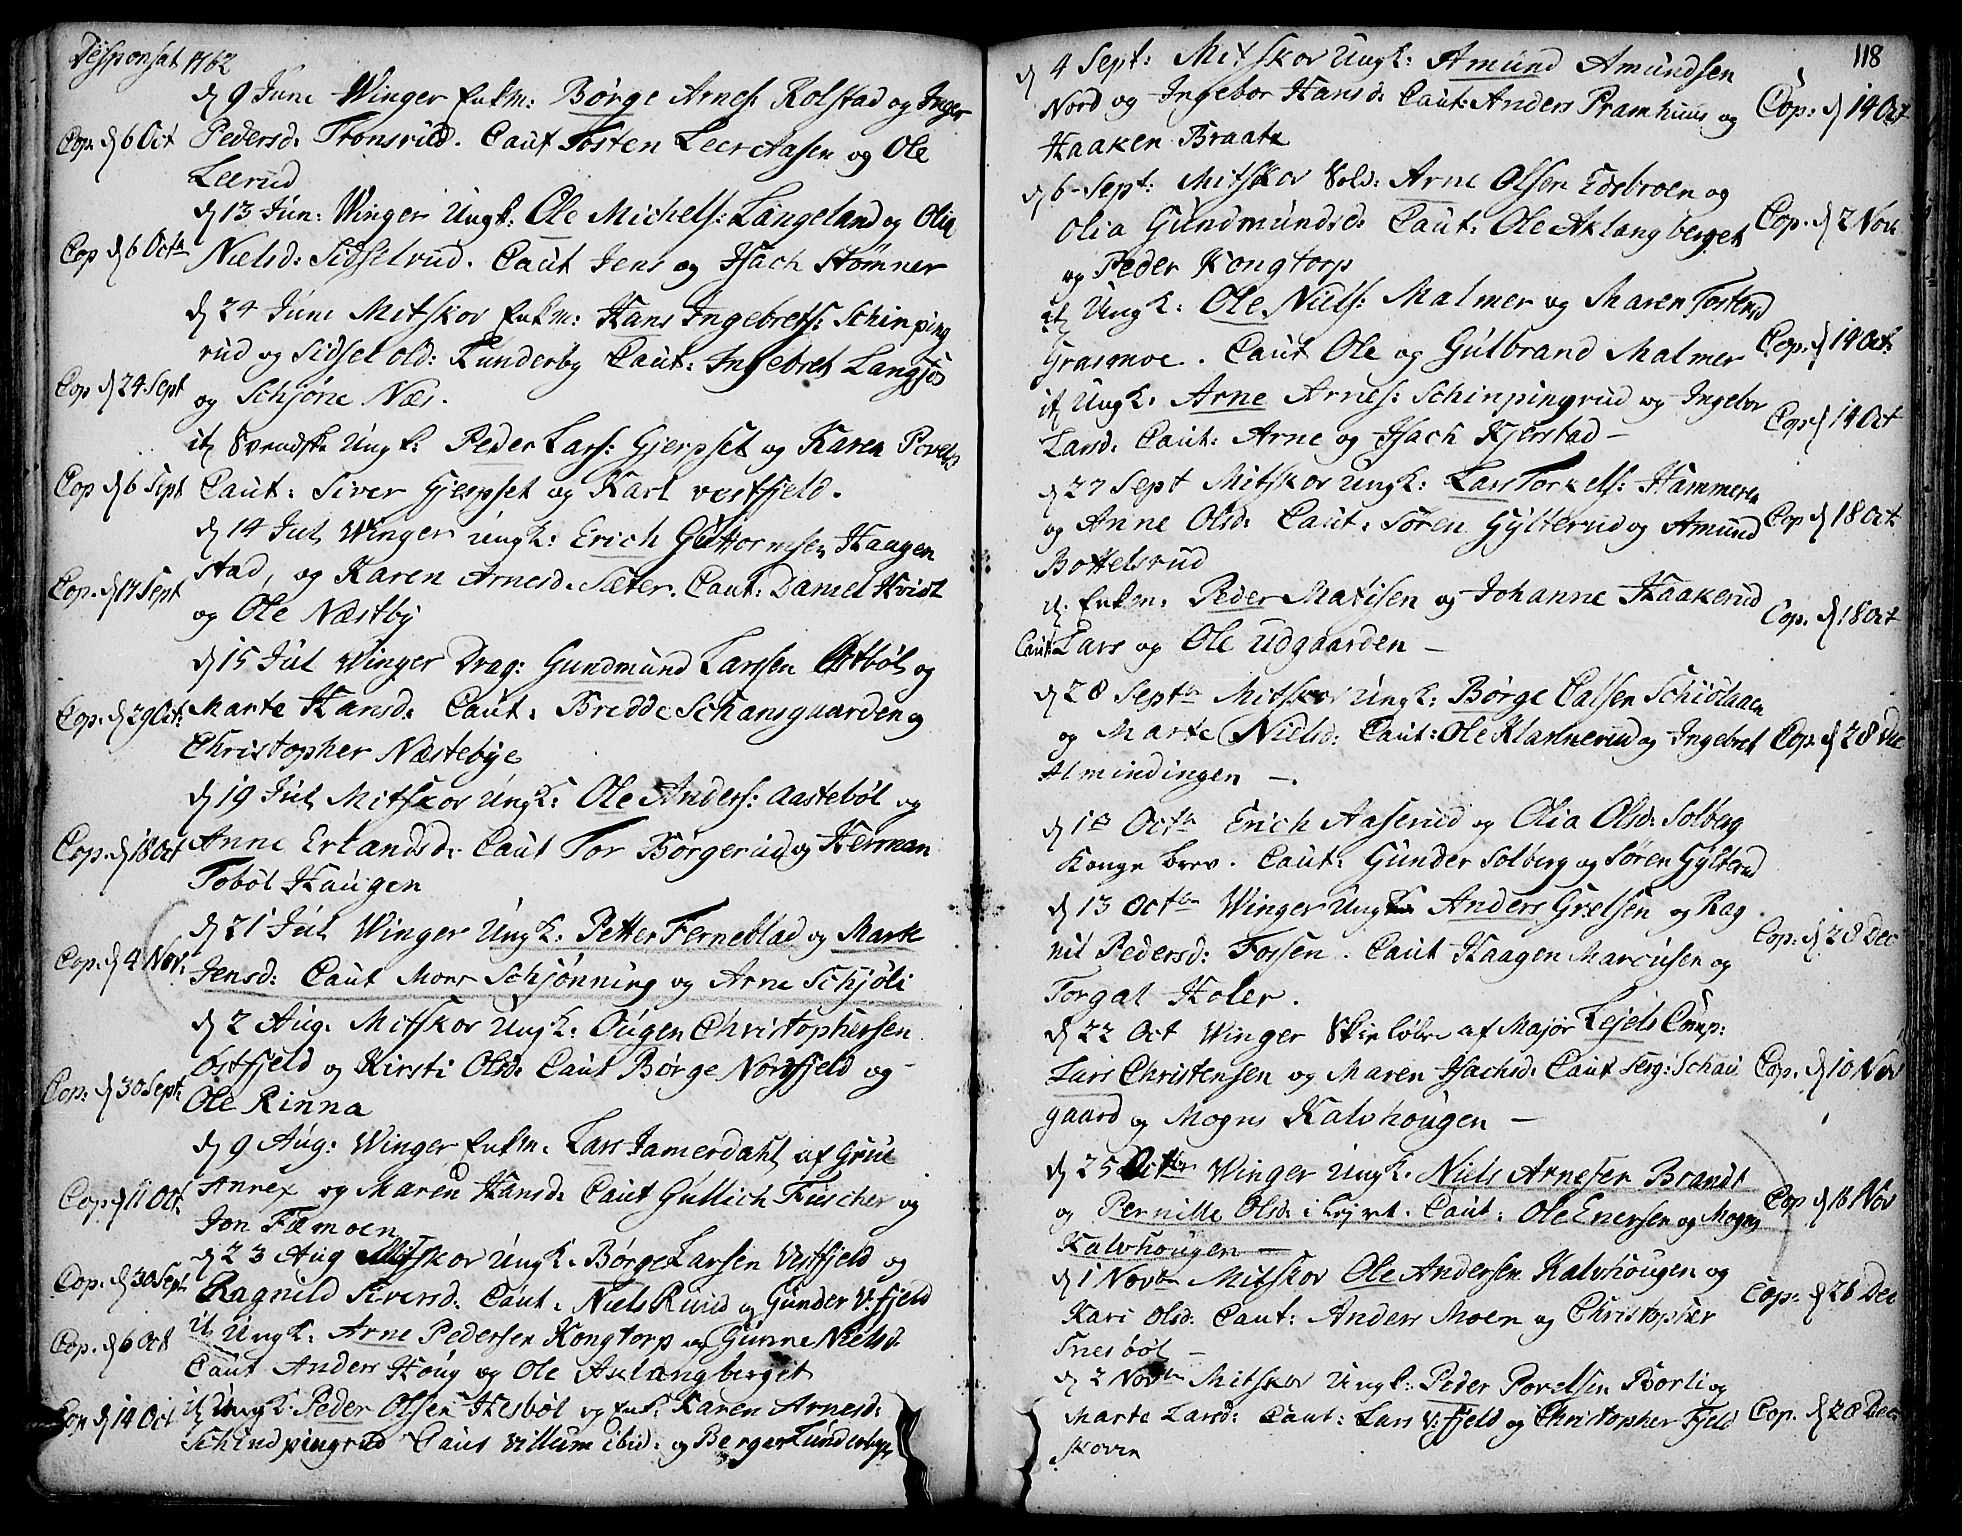 Desponsat 1762
d 9 June Winger Enkm: Børge Arnes: Rolstad og Inger
Cop. d 6 Oct Pedersd: Tronsrud. Caut Tosten Leeraasen og Ole
Leerud
d 13 Jun: Winger Ungk: Ole Michels: Langeland og Olia
Cop d 6 Octr Nielsd: Sidselrud. Caut Jens og Isach Stømner
d 24 June Mitskov Enkm: Hans Ingebrets: Schinping
rud og Sidsel Old: Kunderby Caut: Ingebret Langsiø
Cop d 24 Sept og Schjøne Næs.
it Svendske Ungk: Peder Lars: Gjerpset og Karen Povels
Cop d 6 Sept Caut: Siver Gjerpset og Karl Vestfjeld.
d 14 Jul Winger Ungk: Erich Guttormsen Haagen
Cop. d 17 Sept stad, og Karen Arnesd. Sæter. Caut: Daniel Hvidt
og Ole Næstby
d 15 Jul Winger Drag: Gundmund Larssen Østbøl og
Cop. d 29 Oct: Marte Hansd: Caut: Bredde Schansgaarden og
Christopher Næstebye
d 19 Jul Mitskov Ungk: Ole Anders: Aastebøl og
Cop. d 18 Oct Anne Erlandsd: Caut Tor Børgerud og Herman
Tobøl Haugen
d 21 Jul Winger Ungk: Petter Ferneblad og Marte
Cop. d 4 Nov: Jensd: Caut Mons Schjønning og Arne Schjøli
d 2 Aug. Mitskov Ungk: Ougen Christophersen
Østfjeld og Kirsti Olsd: Caut Børge Nordfjeld og
Cop: d 30 Sept: Ole Rinna
d 9 Aug: Winger Enkm. Lars Jamerdahl af Grue
Cop. d 11 Oct. Annex og Maren Hansd: Caut Gullich Fuscher og
Jon Fæmoen
d 23 Aug Mitskov Ungk: Børge Larsen Vestfjeld og
Cop. d 30 Sept Ragnild Siversd: Caut: Niels Ruud og Gunder V: fjeld
it Ungk: Arne Pedersen Kongtorp og Gunne Nielsd.
Cop. d 6 Oct Caut Anders Houg og Ole Aklangberget
it Ungk. Peder Olsen Hesbøl og Enk: Karen Arnesd:
Cop d 14 Oct Schindpingrud Caut Villum ibid: og Berger Lunderbye
118
d 4 Sept: Mitskov Ungk: Amund Amundsen
Nord og Ingebor Hansd: Caut: Anders Pramhuus og Cop: d 14 Oct
Haaken Braate
d 6 Sept: Mitskov Sold: Arne Olsen Edsbroen og
Olia Gundmundsd: Caut: Ole Aklangberget Cop. d 2 Nov
og Peder Kongtorp
it Ungk: Ole Niels: Malmer og Maren Tostensd
Grasmoe. Caut Ole og Gulbrand Malmer Cop: d 14 Oct:
it Ungk: Arne Arnes: Schinpingrud og Ingebor
Larsd: Caut: Arne og Isach Kjerstad - Cop d 14 Oct
d 27 Sept Mitskov Ungk: Lars Torkels: Hammeren
og Anne Olsd: Caut: Søren Gylterud og Amund Cop d 18 Oct
Bottelsrud
d. Enkm: Peder Matisen og Johanne Haakerud Cop. d 18 Oct
Caut Lars og Ole Udgaarden -
d 28 Septr Mitskov Ungk: Børge Carlsen Schiølaaen
og Marte Nielsd: Caut: Ole Klannerud og Ingebret Cop. d 28 Dec
Almindingen -
d 10 Octr Erich Aaserud og Olia Olsd: Solberg
Konge brev. Caut: Gunder Solberg og Søren Gylterud
d 13 Octbr Winger Ungk Anders Grælsen og Rag
nil Pedersd: Fossen. Caut Haagen Marcusen og Cop. d 28 Dec
Torgal Holer.
d 22 Oct Winger Skieløber af Major Lejels Comp:
Lars Christensen og Maren Isachsd. Caut Serg: Schau Cop. d 10 Nov
gaard og Mogns Kalvhougen -
d 25 Octbr Winger Ungk. Niels Arnesen Brandt
og Pernille Olsd: i Lejret. Caut: Ole Enersen og Mogns Cop d 16 Nov
Kalvhougen -
d 1 Novbr Mitskov Ole Andersen Kalvhougen og
Kari Olsd: Caut: Anders Moen og Christopher Cop: d 26 Dec
Fnesbøl -
d 2 Novbr Mitskov Ungk: Peder Povelsen Borli og
Marte Larsd: Caut: Lars V: fjeld og Christopher Fjeld Cop. d 28 Dec
skoven